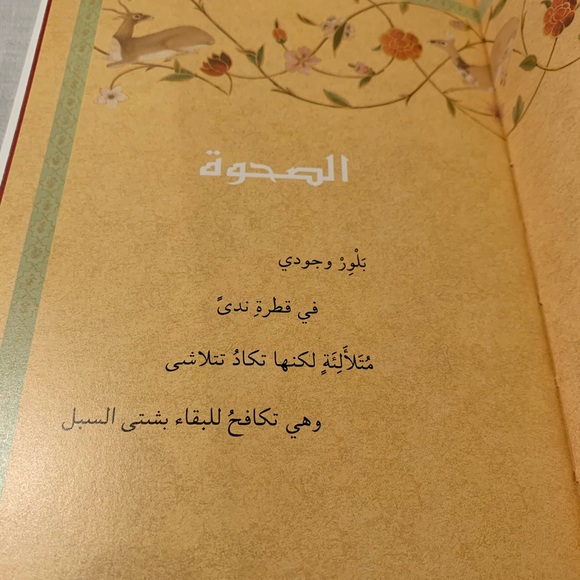 الصحوة
بَلْوِرْ وجودي
في قطرةِ ندىً
مُتَلأَلِئَةٍ لكنها تكادُ تتلاشى
وهي تكافحُ للبقاء بشتى السبل